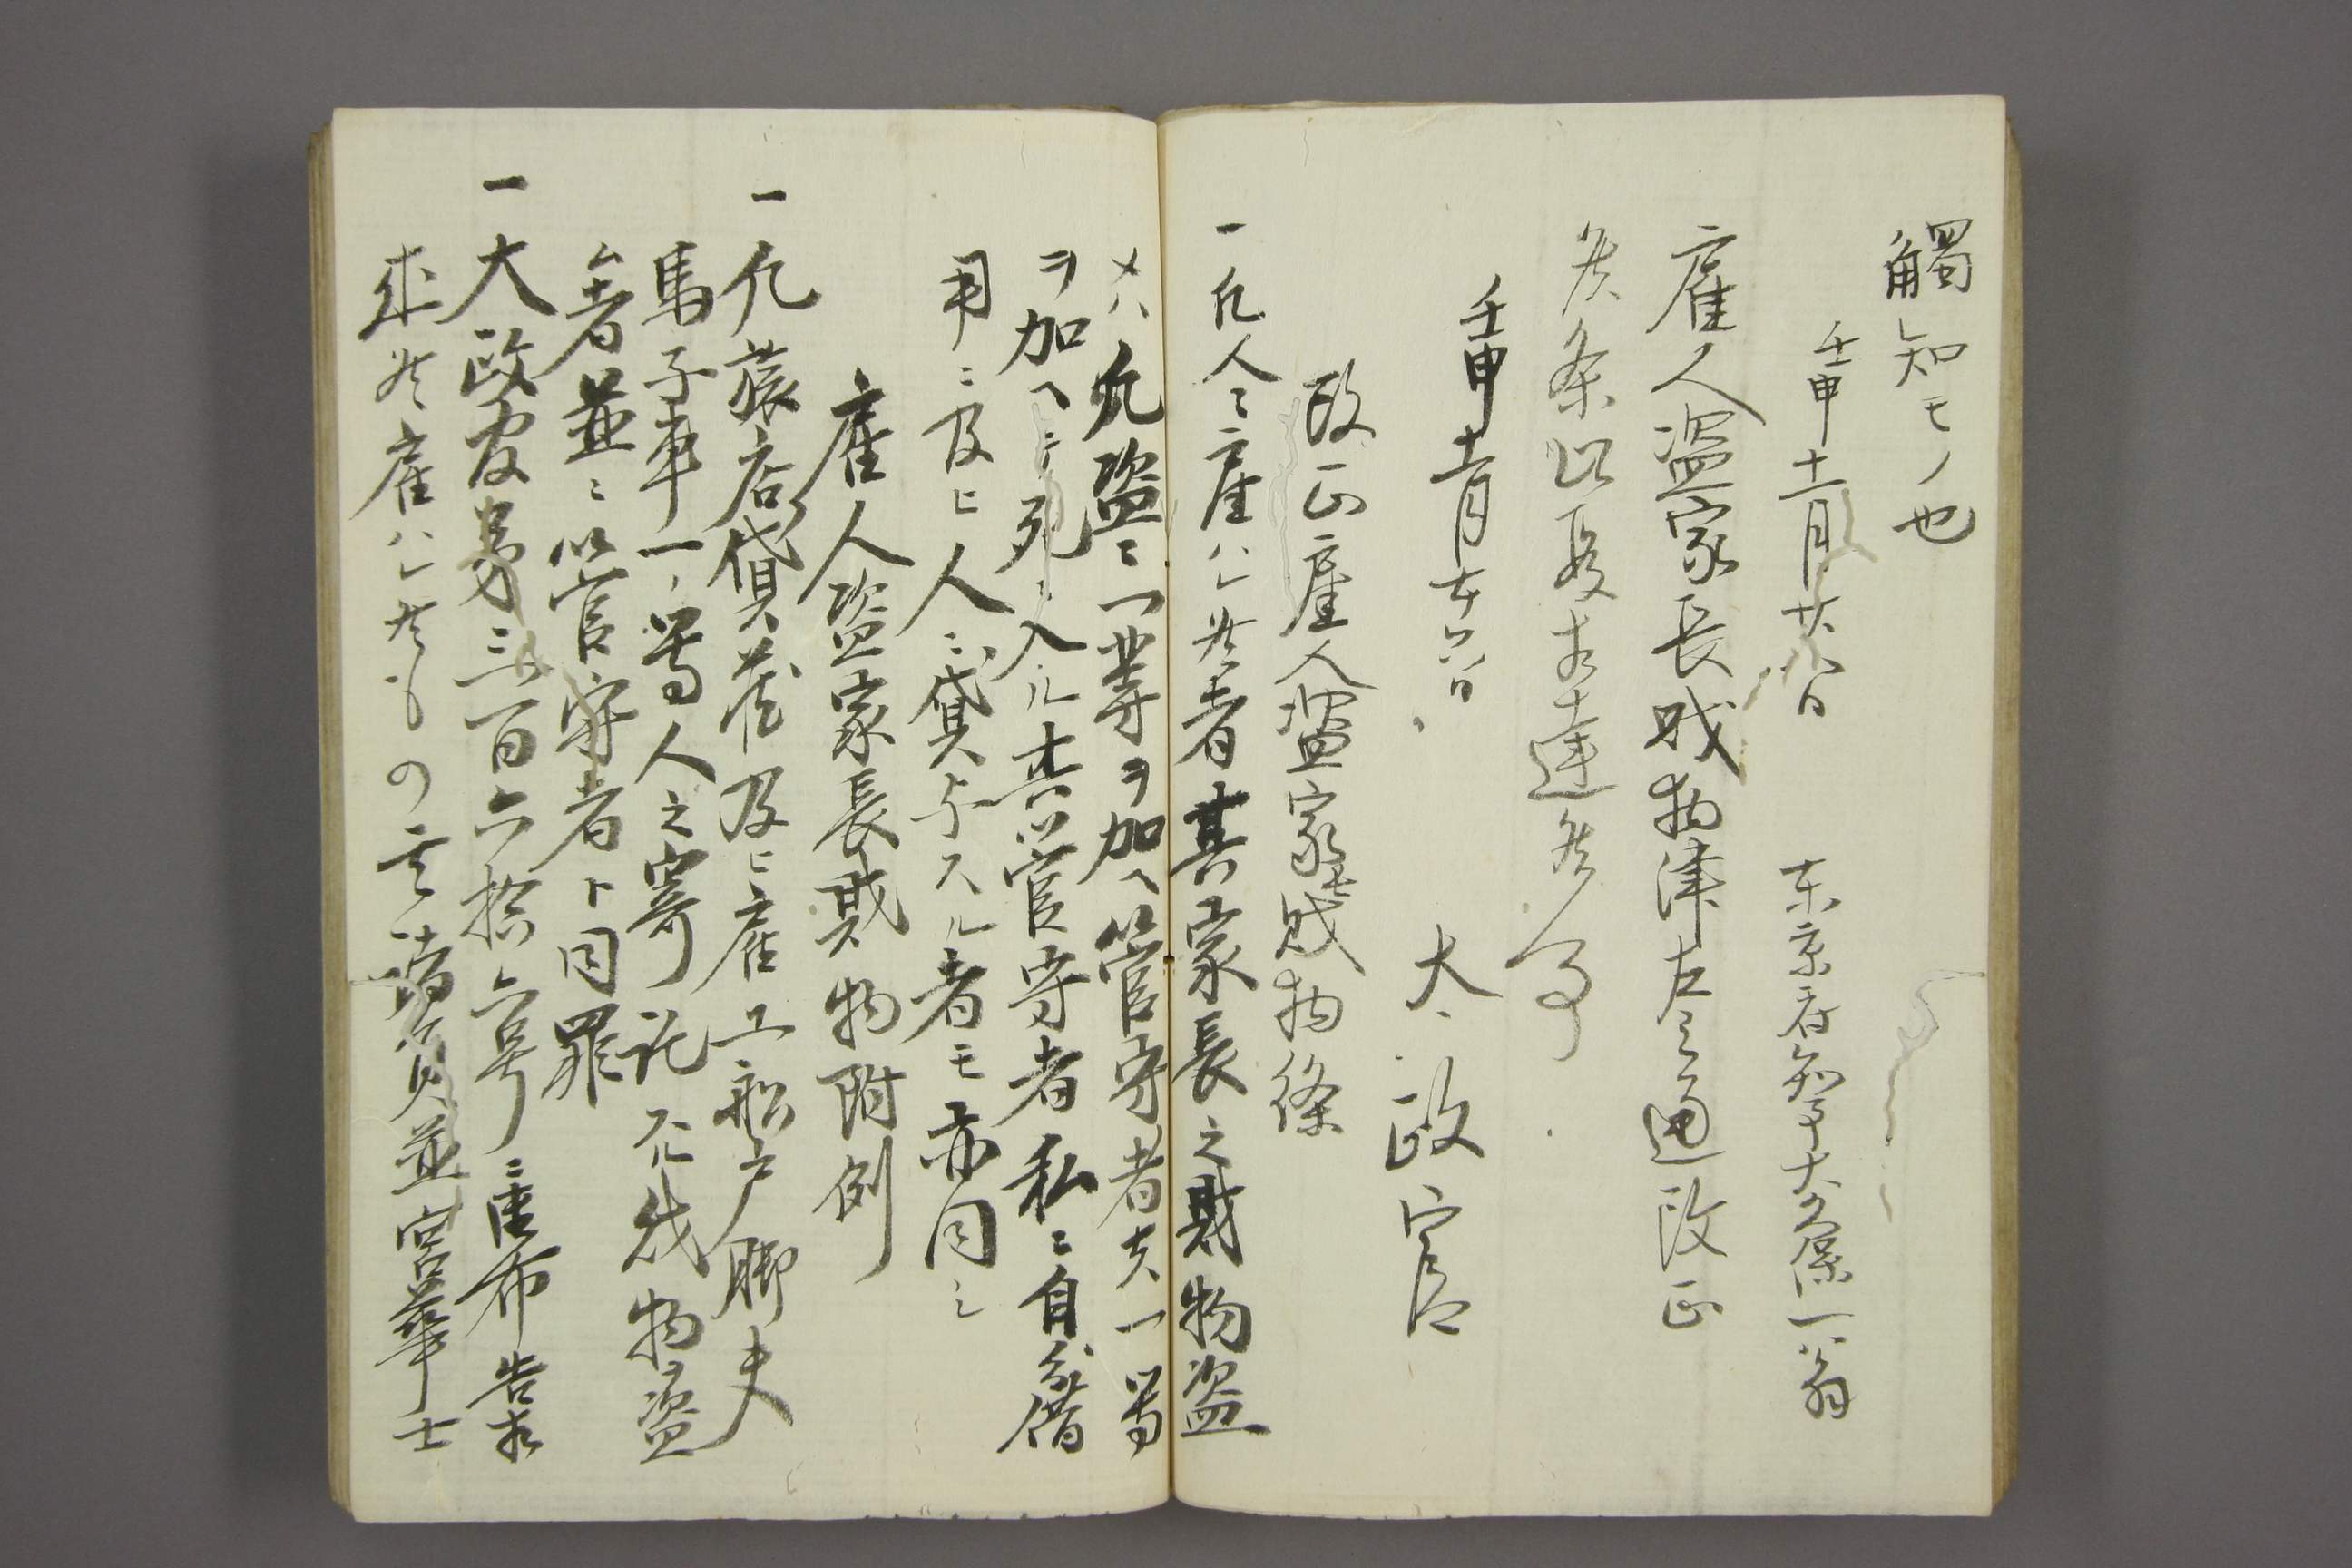 觸知モノ也
壬申十一月廿八日　東京府知事大久保一翁
雇人盗家長財物律左之通改正
候条此段相達候事
壬申十一月廿六日
大政官
改正雇人盗家長財物條
一凡人ニ雇ハレ候者其家長之財物盗
メハ凡盗ニ一等ヲ加ヘ管守者夫一等
ヲ加ヘ死ニ入ル其管守者私ニ自ラ借
用ニ及ヒ人ニ貸与スル者モ亦同シ
雇人盗家長財物附例
一凡旅店貸蔵及ヒ雇工船戸脚夫
馬子車一等人之寄託ノ財物盗
者並ニ管守者ト同罪
一大政官第三百六拾六号ニ布告相
成候雇ハレ候もの諸官員並宮華士